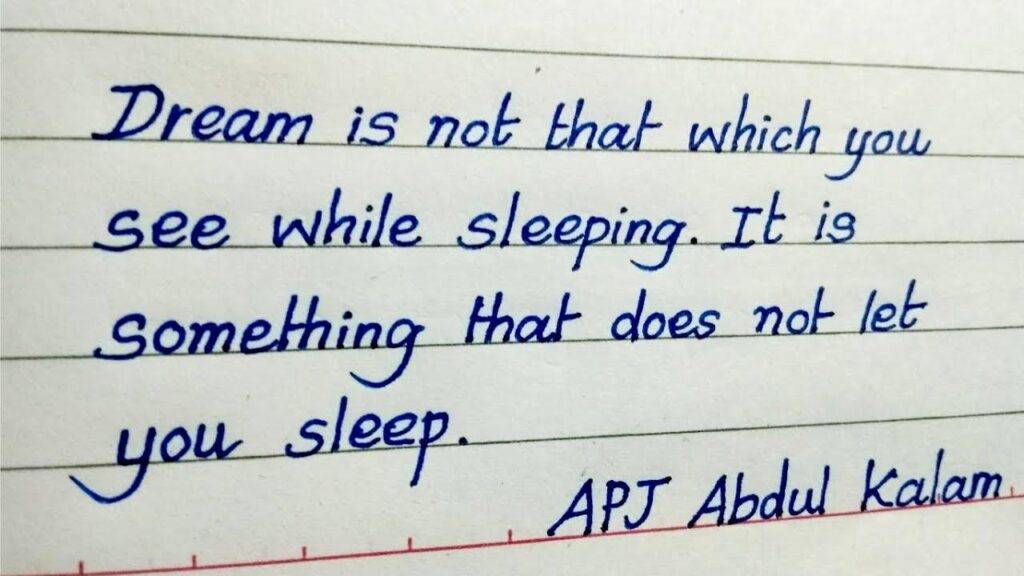 Dream is not that which you
see while sleeping. It is
something that does not let
you sleep.
APJ Abdul Kalam